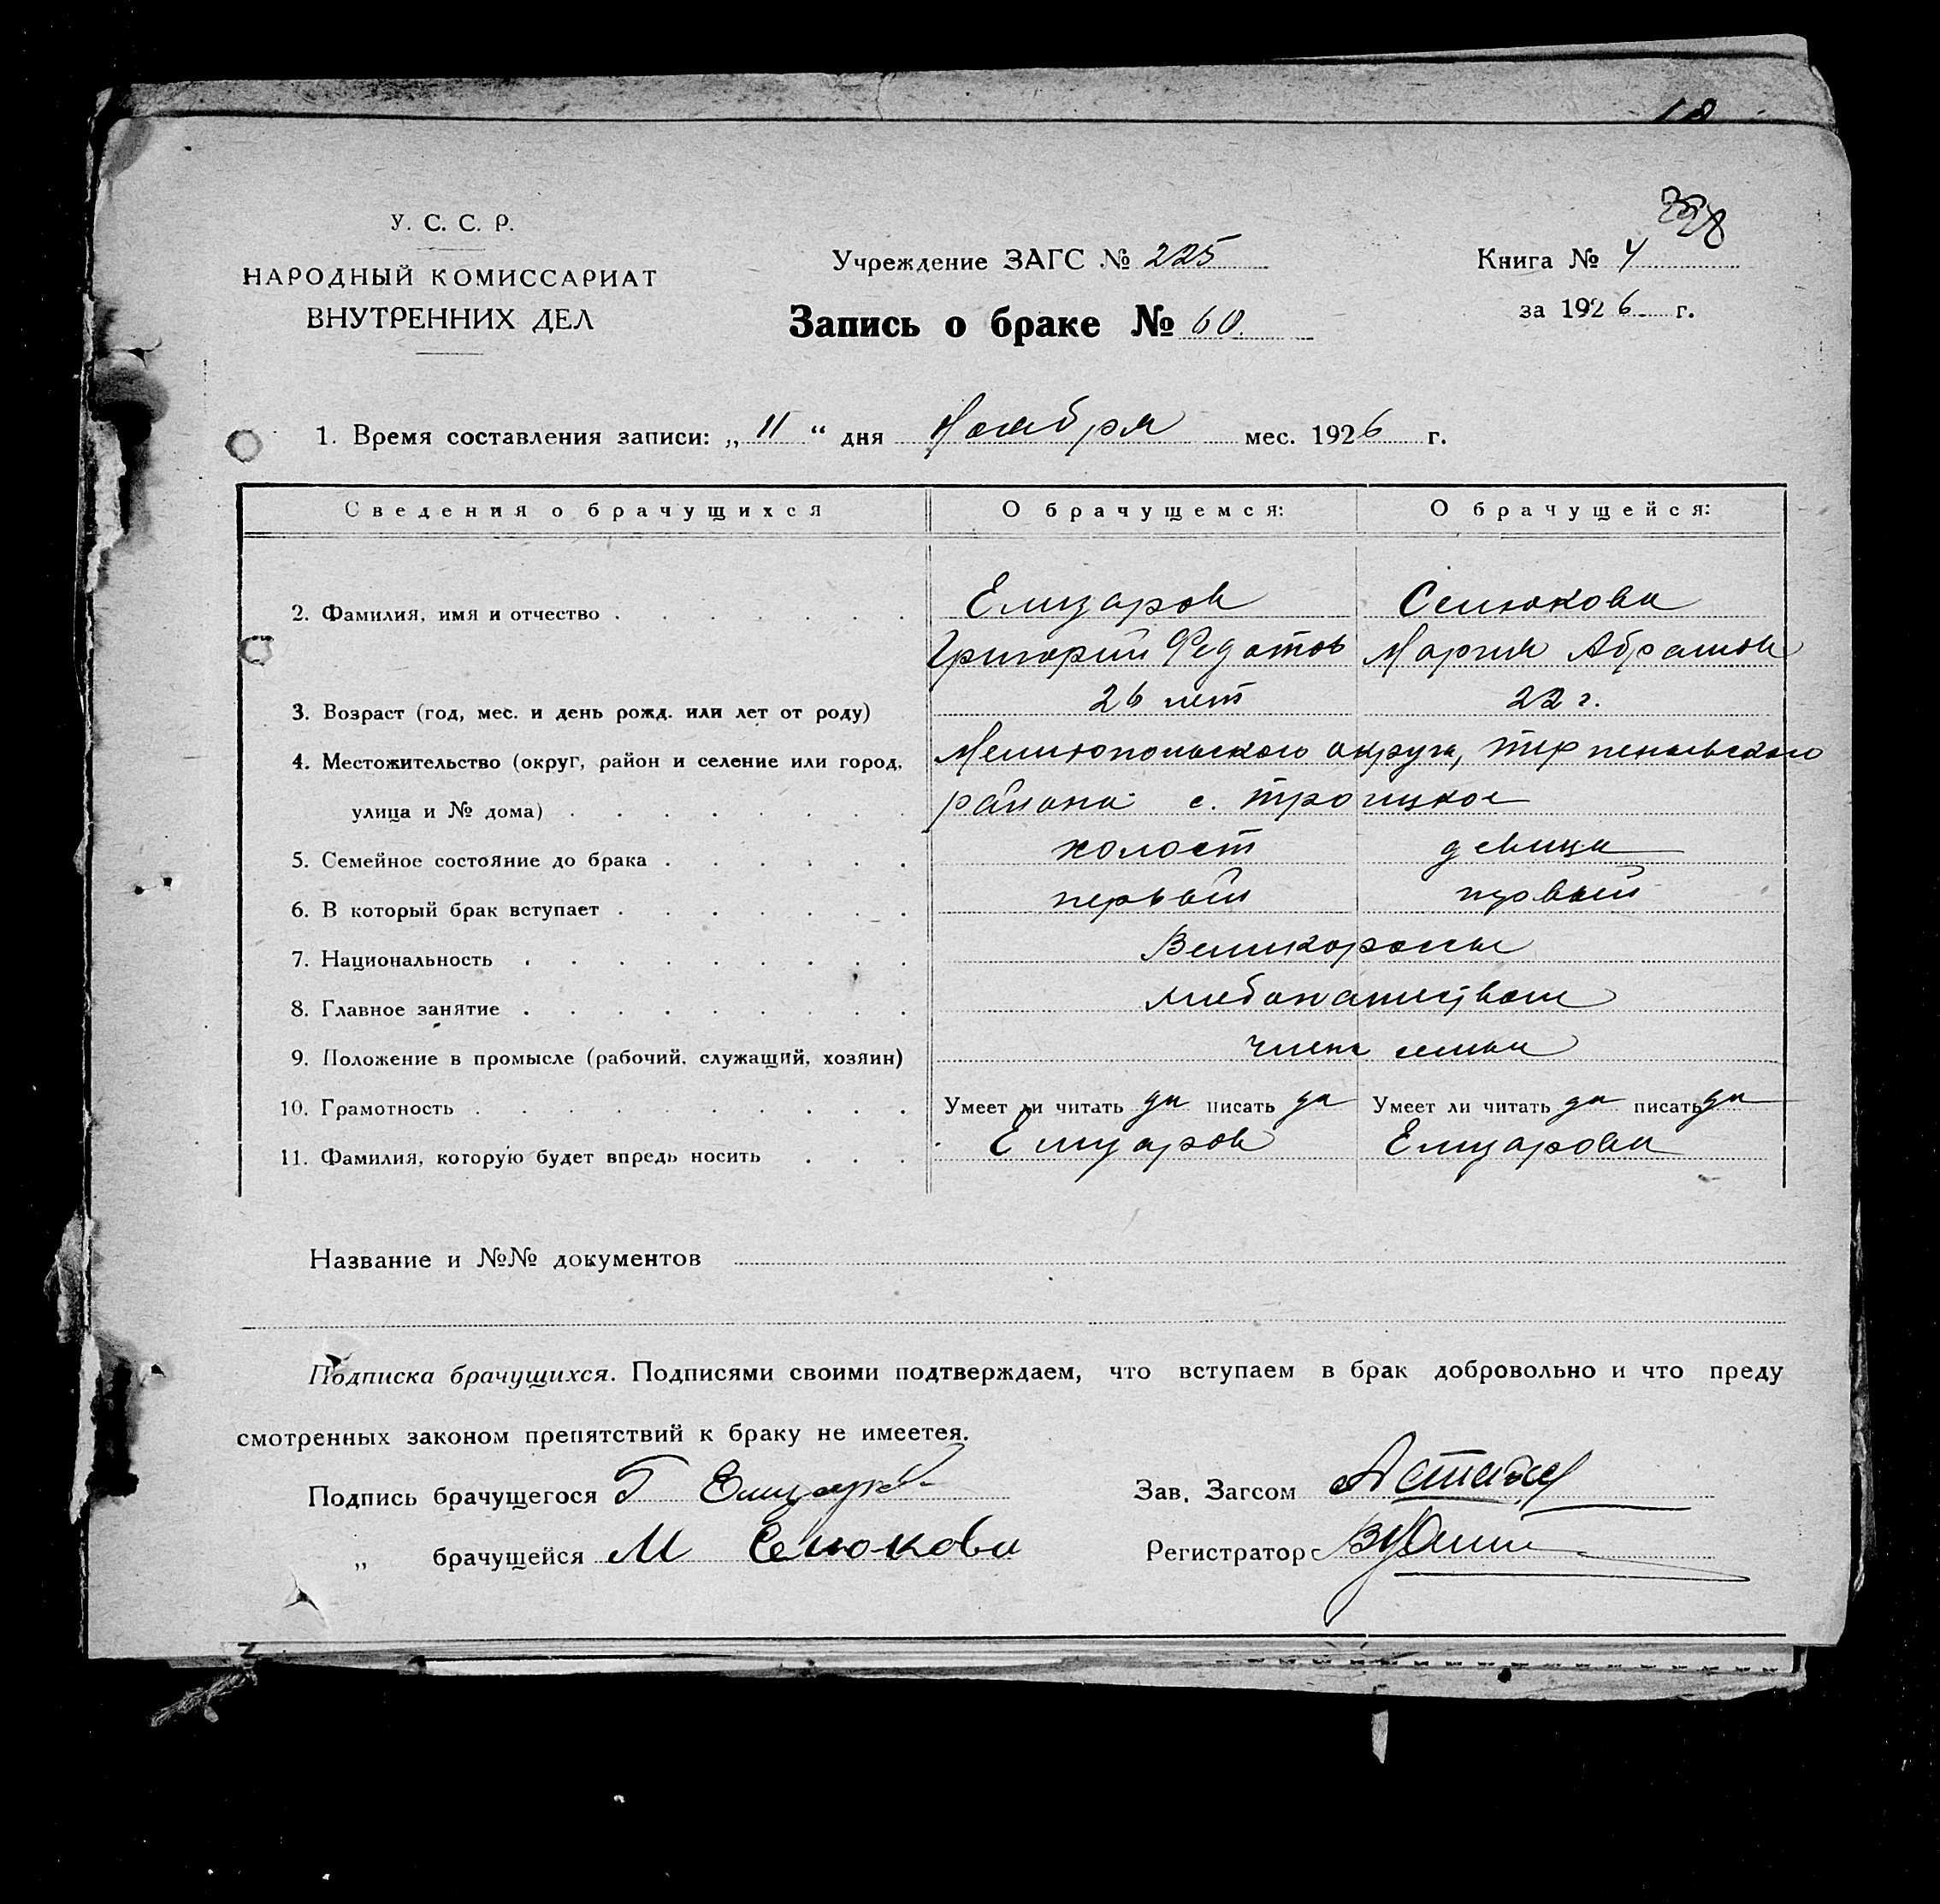 У. С. С. Р.
НАРОДНЫЙ КОМИССАРИАТ
ВНУТРЕННИХ ДЕЛ
Учреждение ЗАГС № 225
Запись о браке № 60.
Книга № 4
за 1926 г.
1. Время составления записи: „ 11 “ дня Ноября мес. 1926 г.
Сведения о брачущихся О брачущемся: О брачущейся:
2. Фамилия, имя и отчество Елизаров Сенюкова
Григорий Федотов Мария Абрамов
3. Возраст (год, мес. и день рожд. или лет от роду) 26 лет 22 г.
4. Местожительство (округ, район и селение или город, Мелитопольского округа, Терпеньевского
улица и № дома) района с. Троицкое
5. Семейное состояние до брака холост девица
6. В который брак вступает первый первый
7. Национальность Великороссы
8. Главное занятие хлебопашеством
9. Положение в промысле (рабочий, служащий, хозяин) члены семьи
10. Грамотность Умеет ли читать да писать да Умеет ли читать да писать да
11. Фамилия, которую будет впредь носить Елизаров Елизарова
Название и №№ документов
Подписка брачущихся. Подписями своими подтверждаем, что вступаем в брак добровольно и что преду
смотренных законом препятствий к браку не имеетея.
Подпись брачущегося Г Елизаров Зав. Загсом
„ брачущейся М Сенюкова Регистратор